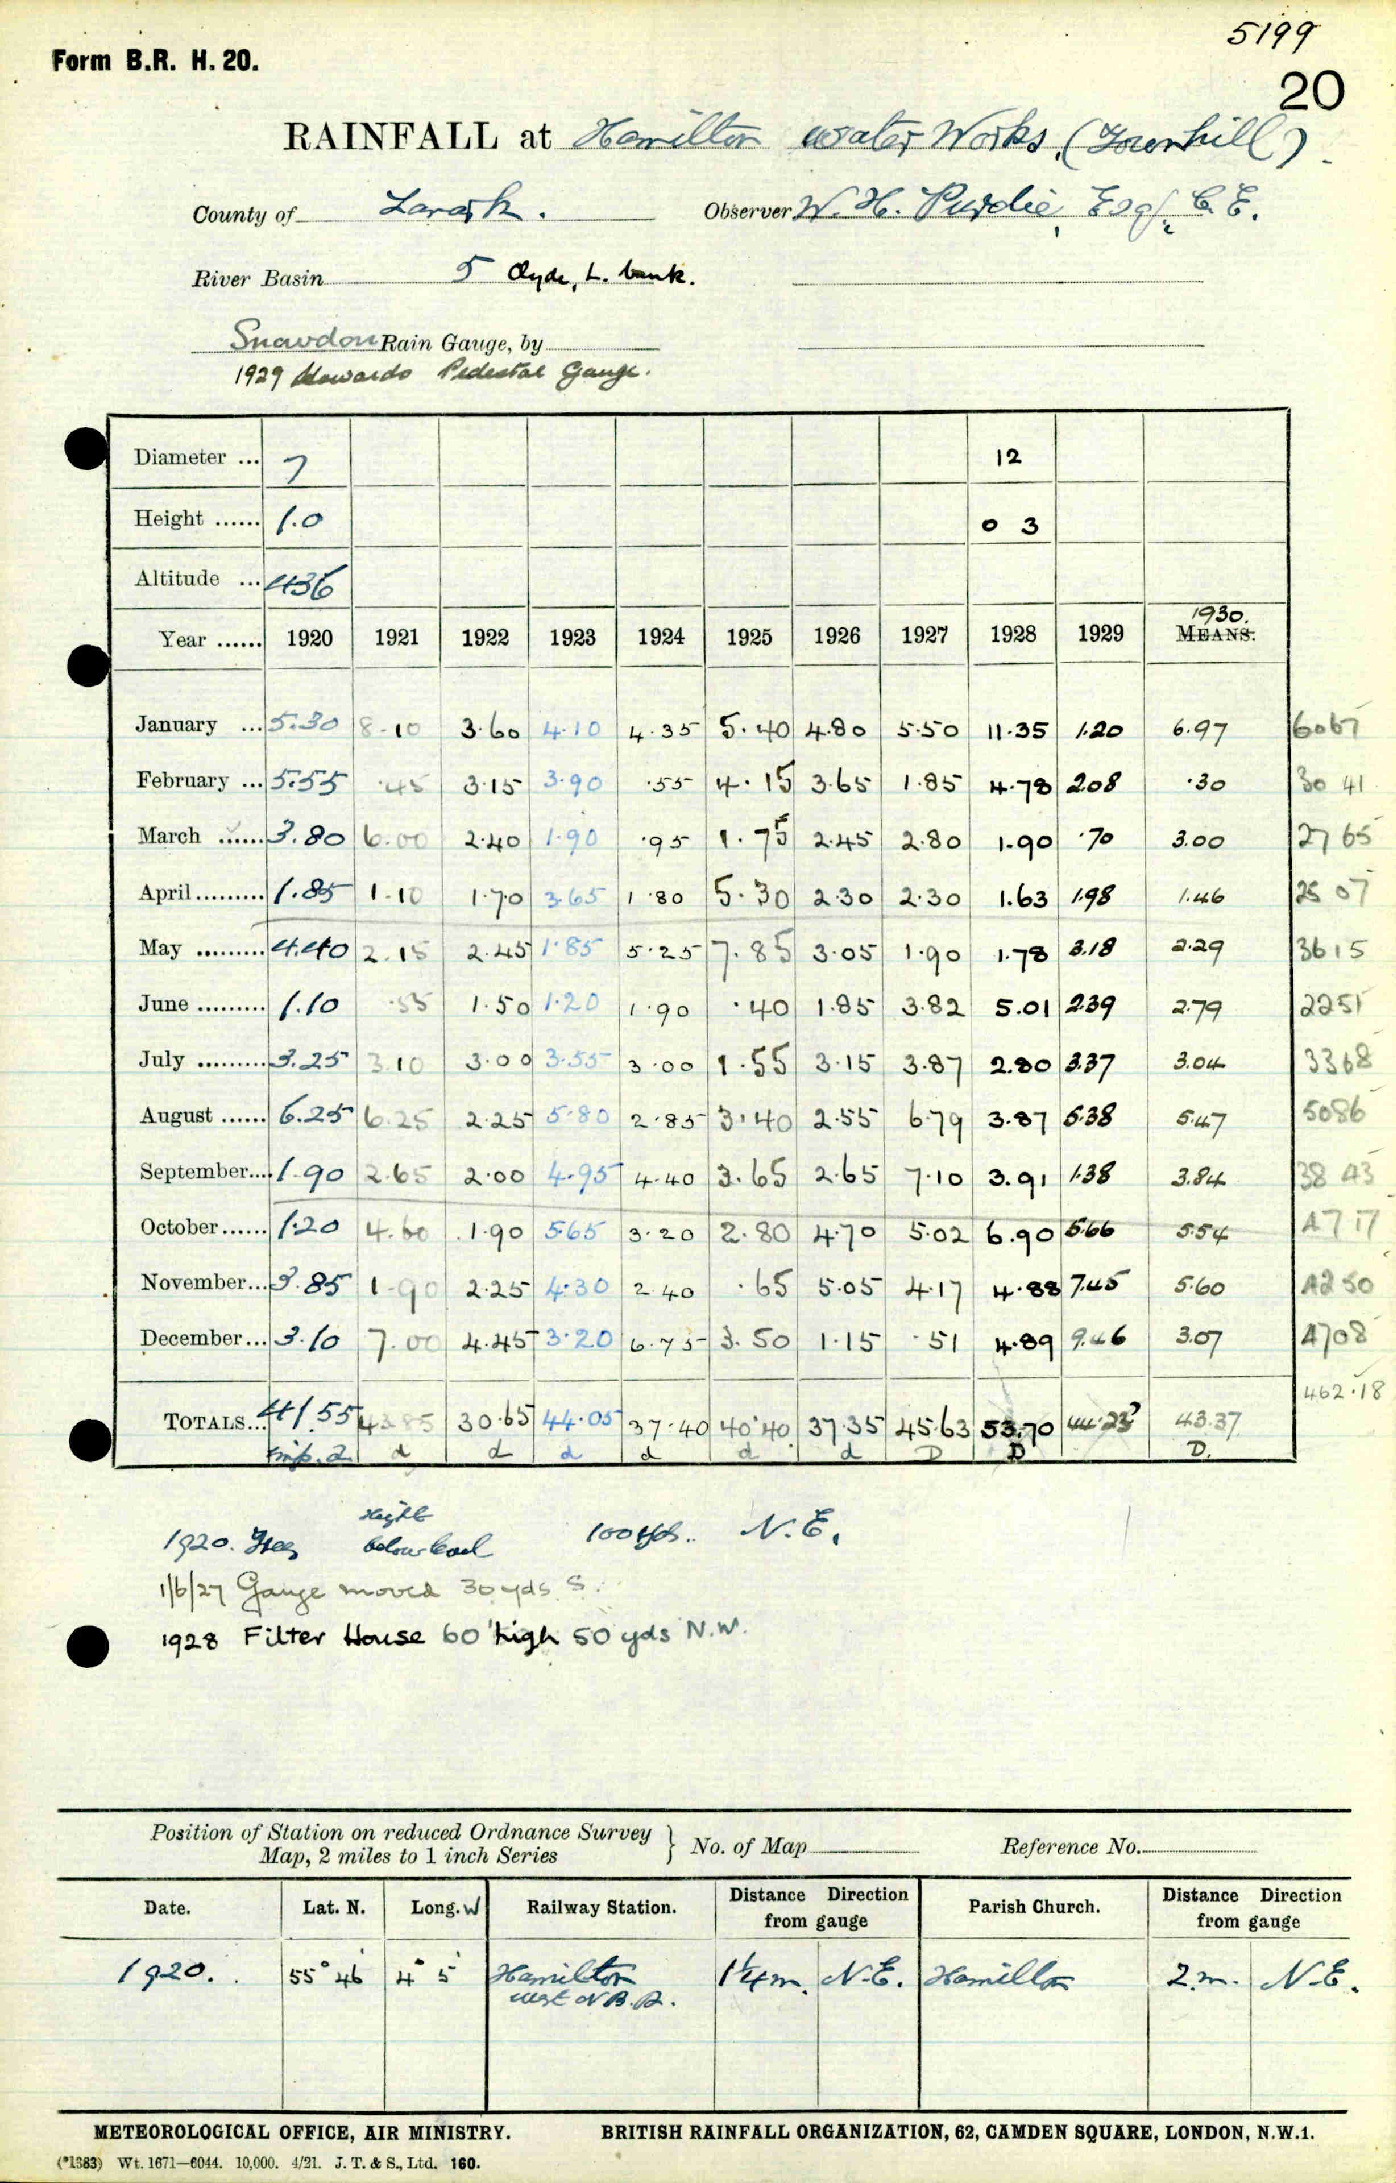 5199
Form B.R. H. 20.
20
RAINFALL at Hamilton Water Works, (Townhill).
County of Lanark. Observer W. H. Purdie, Esq., C.E.
River Basin 5 Clyde, L. bank.
Snowdon Rain Gauge, by
1929 Howards Pedestal Gauge.
Diameter ... 7 12
Height ...... 1.0 0 3
Altitude ... 436
1930.
Year ...... 1920 1921 1922 1923 1924 1925 1926 1927 1928 1929 MEANS.
January ... 5.30 8.10 3.60 4.10 4.35 5.40 4.80 5.50 11.35 1.20 6.97 6067
February ... 5.55 .45 3.15 3.90 .55 4.15 3.65 1.85 4.78 2.08 .30 30 41
March ...... 3.80 6.00 2.40 1.90 .95 1.75 2.45 2.80 1.90 .70 3.00 27 65
April ......... 1.85 1.10 1.70 3.65 1.80 5.30 2.30 2.30 1.63 1.98 1.46 25 07
May ......... 4.40 2.15 2.45 1.85 5.25 7.85 3.05 1.90 1.78 3.18 2.29 3615
June ......... 1.10 .55 1.50 1.20 1.90 .40 1.85 3.82 5.01 2.39 2.79 2251
July ......... 3.25 3.10 3.00 3.55 3.00 1.55 3.15 3.87 2.80 3.37 3.04 3368
August ...... 6.25 6.25 2.25 5.80 2.85 3.40 2.55 6.79 3.87 5.38 5.47 5086
September.... 1.90 2.65 2.00 4.95 4.40 3.65 2.65 7.10 3.91 1.38 3.84 38 43
October...... 1.20 4.60 1.90 5.65 3.20 2.80 4.70 5.02 6.90 5.66 5.54 47 17
November... 3.85 1.90 2.25 4.30 2.40 .65 5.05 4.17 4.88 7.45 5.60 4250
December... 3.10 7.00 4.45 3.20 6.75 3.50 1.15 .51 4.89 9.46 3.07 4708
462.18
TOTALS... 41.55 43.85 30.65 44.05 37.40 40.40 37.35 45.63 53.70 44.23? 43.37
d d d d d d D D D.
1920. Trees height below level 100 yds. N.E.
1/6/27 Gauge moved 30 yds S.
1928 Filter House 60' high 50 yds N.W.
Position of Station on reduced Ordnance Survey
Map, 2 miles to 1 inch Series } No. of Map Reference No.
Date. Lat. N. Long. W Railway Station. Distance Direction from gauge Parish Church. Distance Direction from gauge
1920. 55° 46' 4° 5' Hamilton 1¼ m. N.E. Hamilton 2 m. N.E.
West N.B.R.
METEOROLOGICAL OFFICE, AIR MINISTRY. BRITISH RAINFALL ORGANIZATION, 62, CAMDEN SQUARE, LONDON, N.W.1.
(*1383) Wt. 1671—6044. 10,000. 4/21. J. T. & S., Ltd. 160.